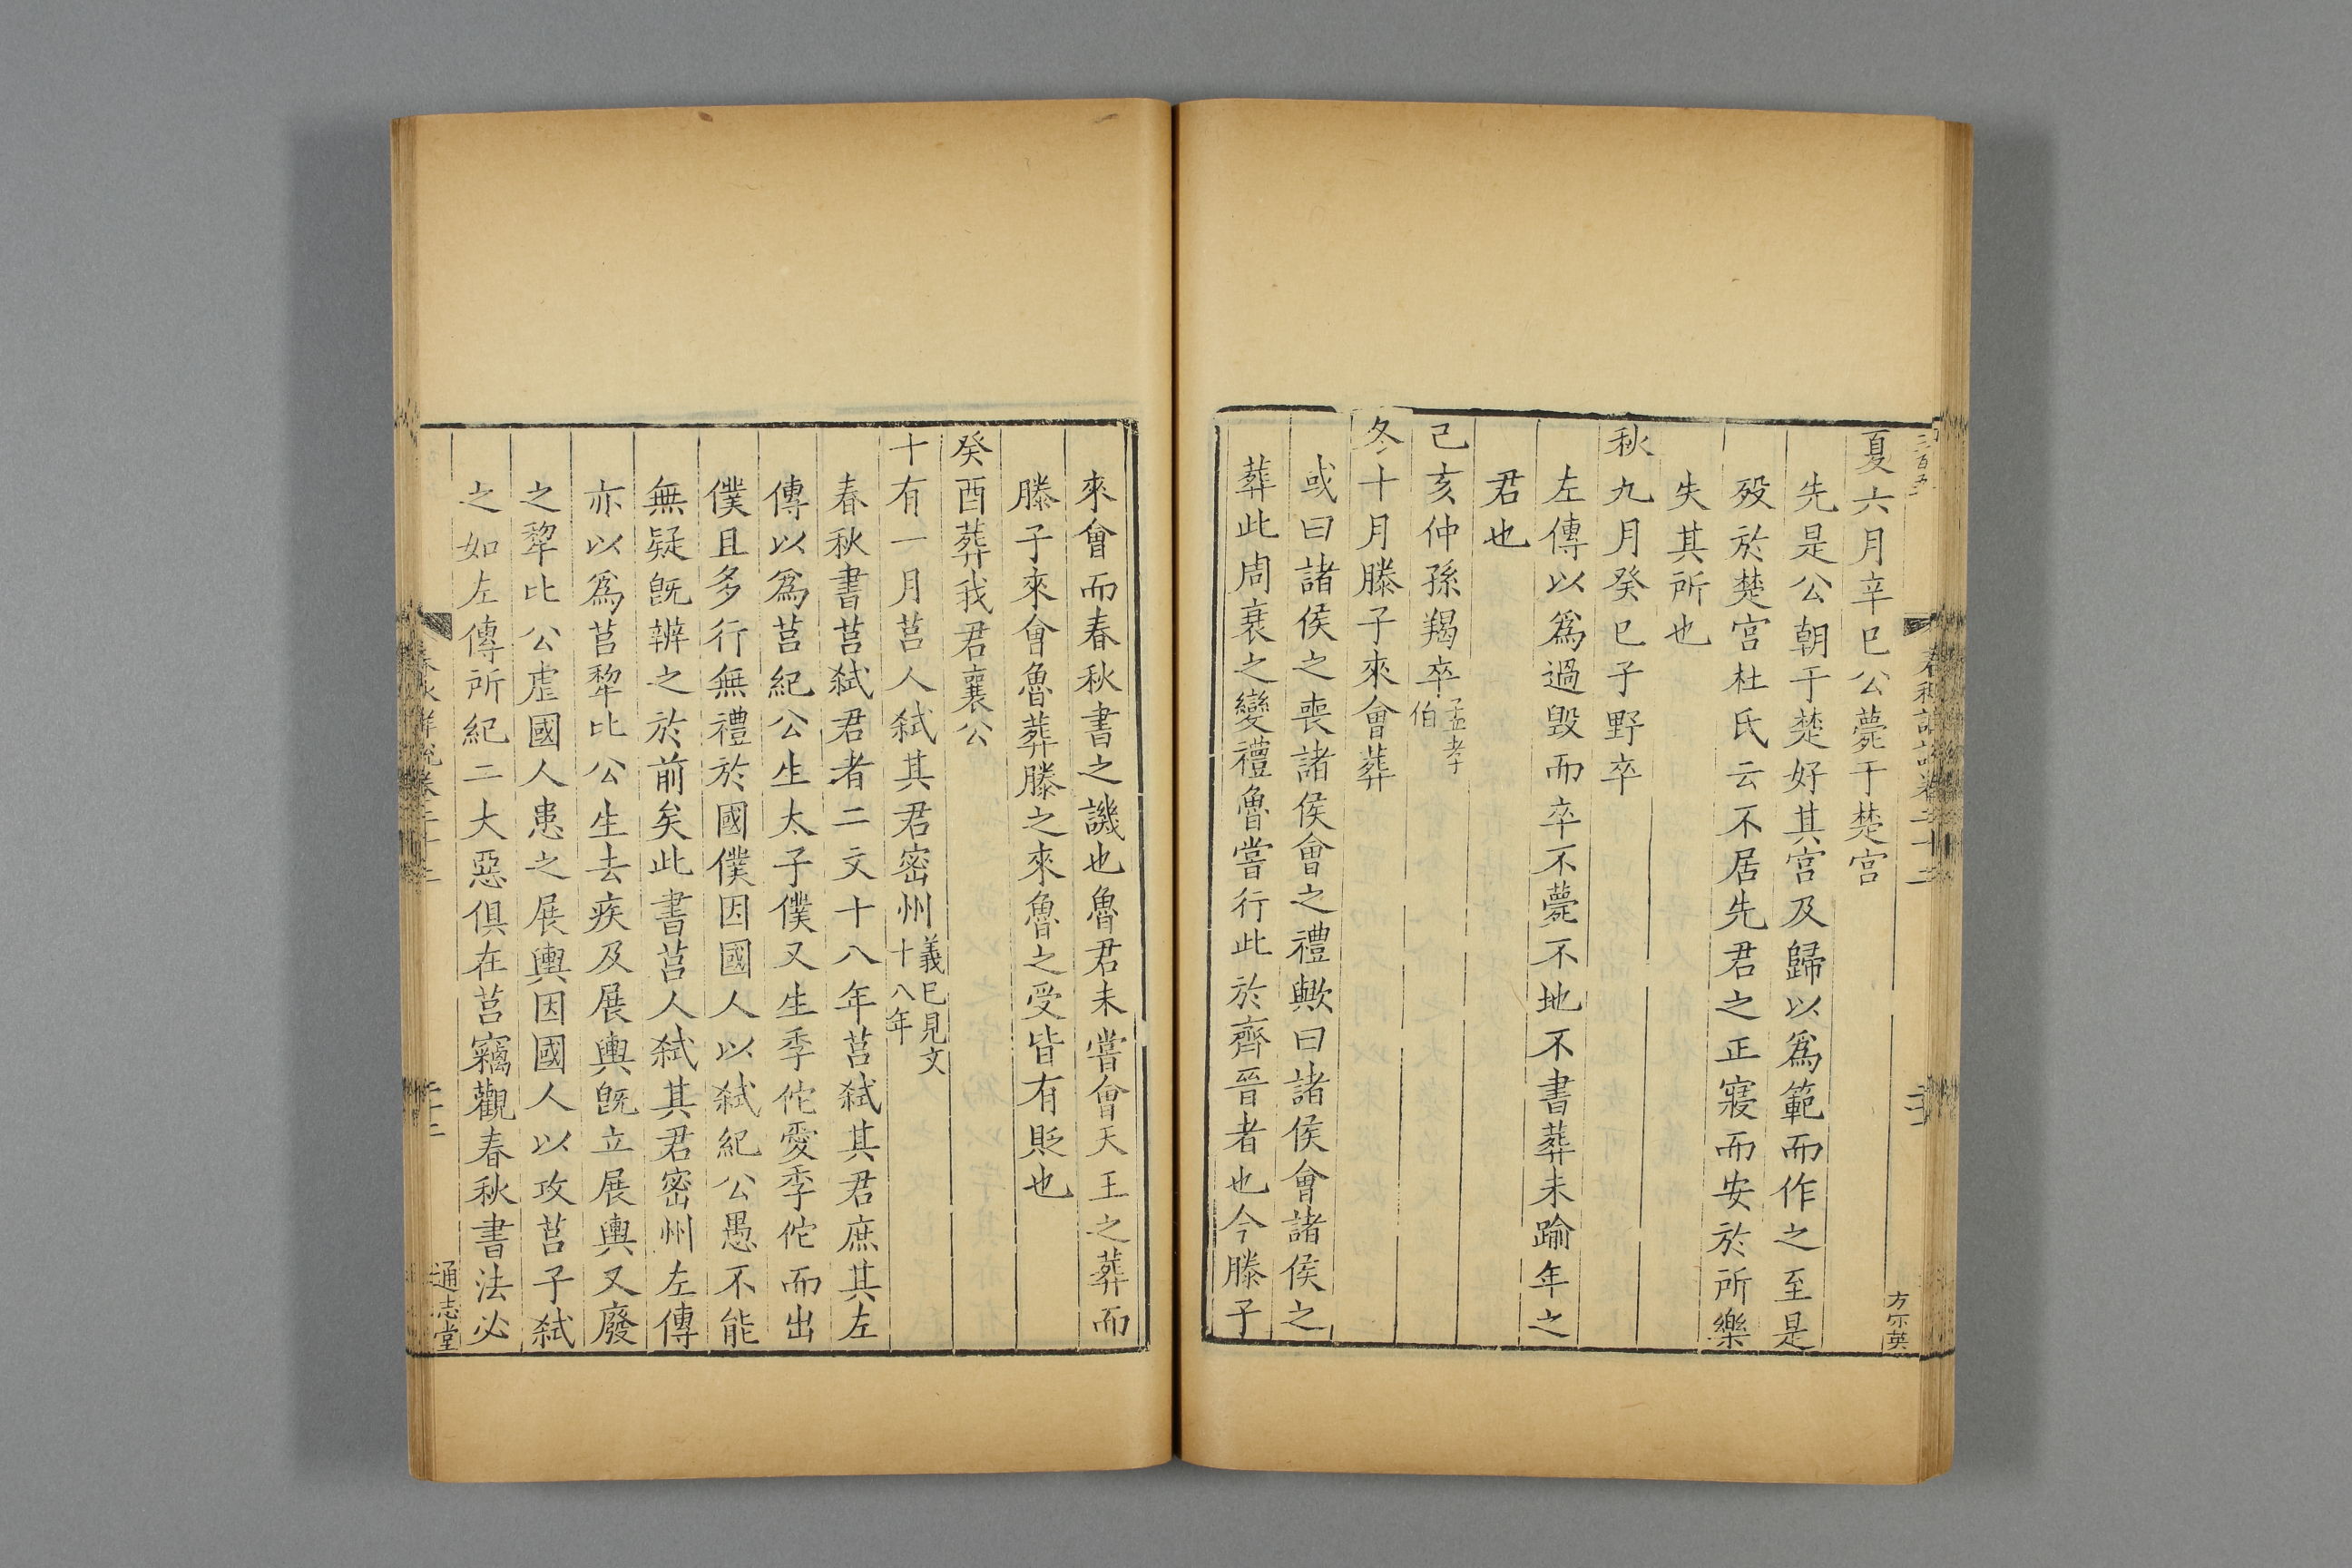 夏六月辛巳公薨于楚宮
先是公朝于楚好其宮及歸以爲範而作之至是
歿於楚宮杜氏云不居先君之正寢而安於所樂
失其所也
秋九月癸巳子野卒
左傳以爲過毀而卒不薨不地不書葬未踰年之
君也
己亥仲孫羯卒孟孝伯
冬十月滕子來會葬
或曰諸侯之喪諸侯會之禮歟曰諸侯會諸侯之
葬此周衰之變禮魯嘗行此於齊晉者也今滕子
方宗英
來會而春秋書之譏也魯君未嘗會天王之葬而
滕子來會魯葬滕之來魯之受皆有貶也
癸酉葬我君襄公
十有一月莒人弑其君密州義已見文十八年
春秋書莒弑君者二文十八年莒弑其君庶其左
傳以爲莒紀公生太子僕又生季佗愛季佗而出
僕且多行無禮於國僕因國人以弑紀公愚不能
無疑旣辨之於前矣此書莒人弑其君密州左傳
亦以爲莒犂比公生去疾及展輿旣立展輿又廢
之犂比公虐國人患之展輿因國人以攻莒子弑
之如左傳所紀二大惡俱在莒竊觀春秋書法必
通志堂